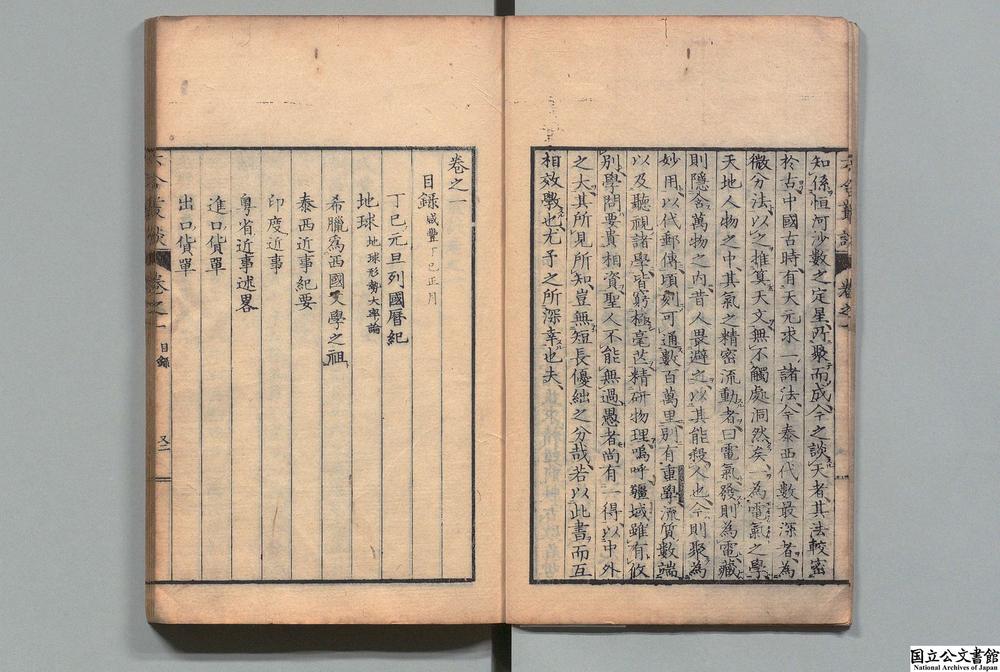 知係恒河沙數之定星所聚而成今之談天者其法較密
於古中國古時有天元求一諸法今泰西代數最深者為
微分法以之推算天文無不觸處洞然矣一為電氣之學
天地人物之中其氣之精密流動者曰電氣發則為電藏
則隱含萬物之內昔人畏避之以其能殺人也今則聚為
妙用以代郵傳頃刻可通數百萬里別有重學流質數端
以及聽視諸學皆窮極毫芒精研物理嗚呼疆域雖有攸
別學問要貴相資聖人不能無過愚者尚有一得以中外
之大其所見所知豈無短長優絀之分哉若以此書而互
相效斆也尤予之所深幸也夫
六合叢談 卷之一
卷之一
目錄 咸豐丁巳正月
丁巳元旦列國曆紀
地球 地球形勢大率論
希臘為西國文學之祖
泰西近事紀要
印度近事
粵省近事述畧
進口貨單
出口貨單
六合叢談 卷之一 目錄
国立公文書館
National Archives of Japan